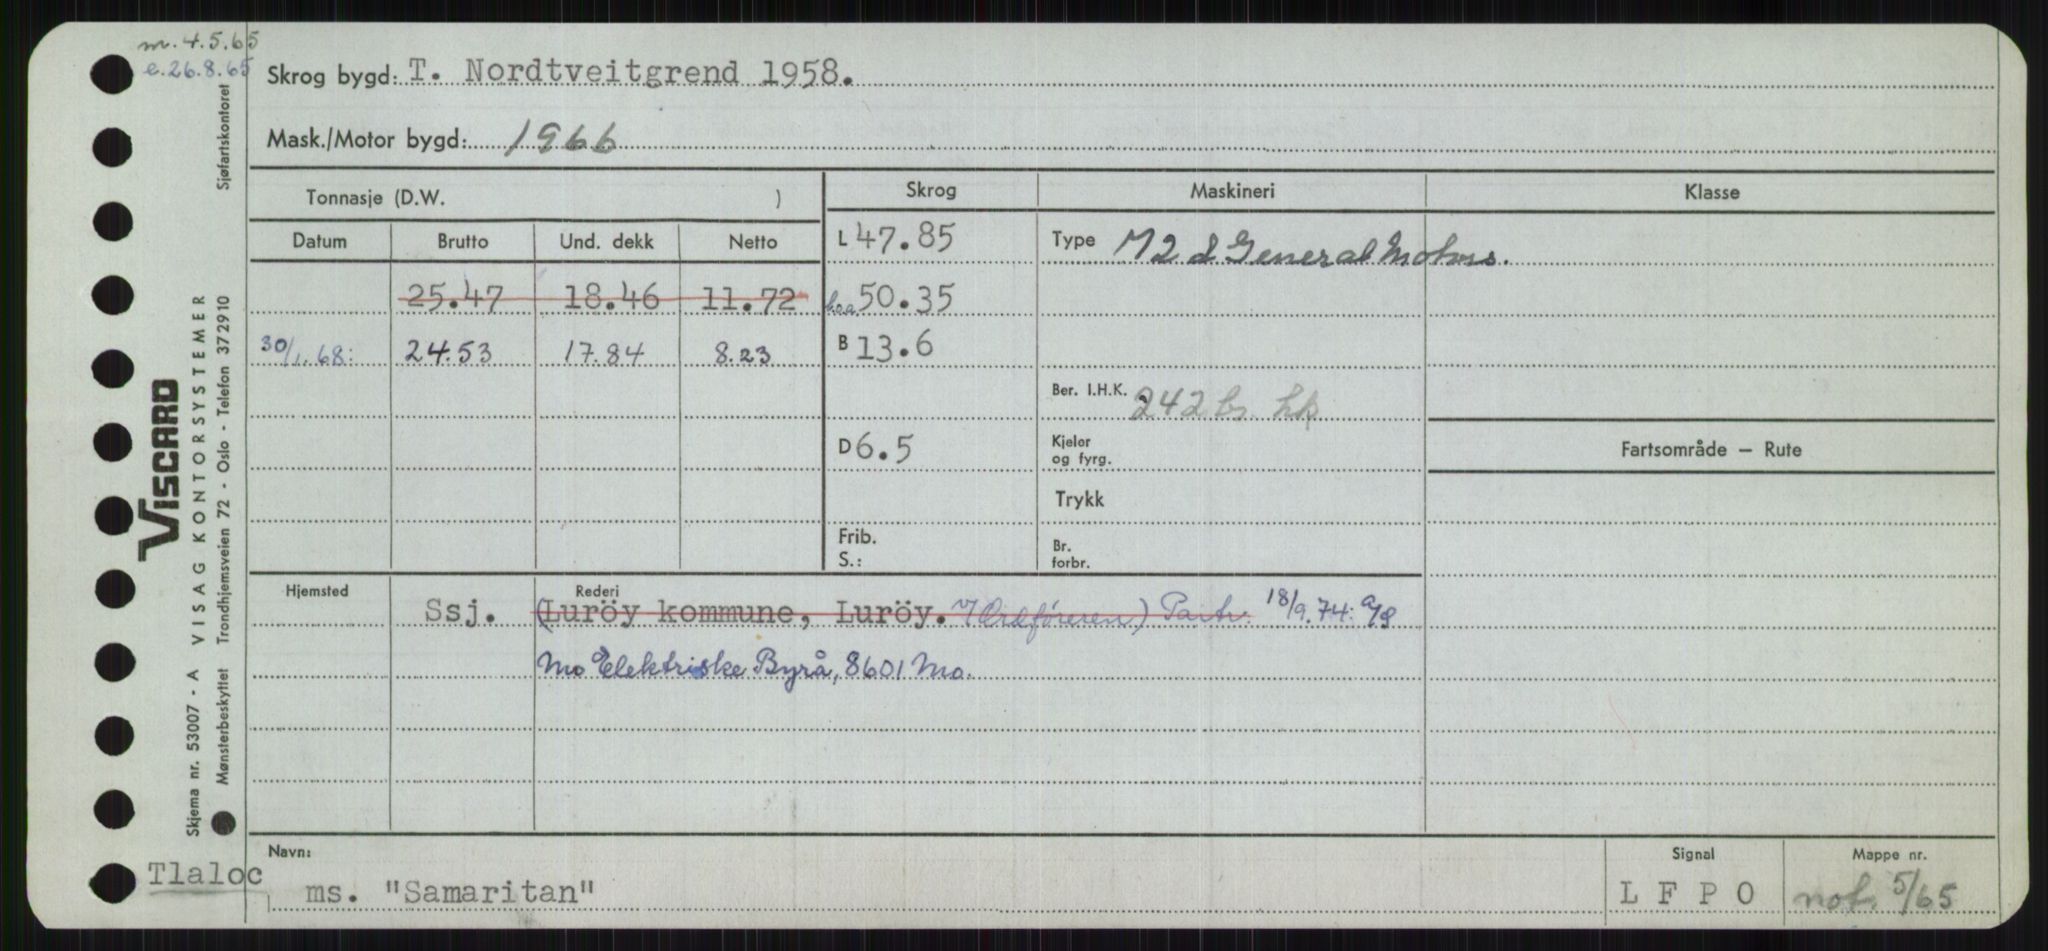 m. 4.5.65
e. 26.8.65
Skrog bygd: T. Nordtveitgrend 1958.
Mask./Motor bygd: 1966
Tonnasje (D.W. )
Skrog
Maskineri
Klasse
Datum Brutto Und. dekk Netto
L 47.85
Type M 2 d General Motors.
25.47 18.46 11.72
loa 50.35
30/1.68: 24.53 17.84 8.23
B 13.6
Ber. I.H.K. 242 bs. hk
D 6.5
Kjeler
og fyrg.
Fartsområde — Rute
Trykk
Frib.
S.:
Br.
forbr.
Hjemsted
Rederi
Ssj. (Luröy kommune, Luröy. v/Ordføreren) Partr. 18/9.74: A/S
Mo Elektriske Byrå, 8601 Mo.
Navn:
Signal
Mappe nr.
Tlaloc
ms. "Samaritan"
L F P O
not. 5/65
VISCARD
VISAG KONTORSYSTEMER
Skjema nr. 53007 - A
Mønsterbeskyttet Trondhjemsveien 72 - Oslo - Telefon 372910
Sjøfartskontoret